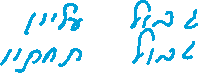 גבול עליון
גבול תחתון